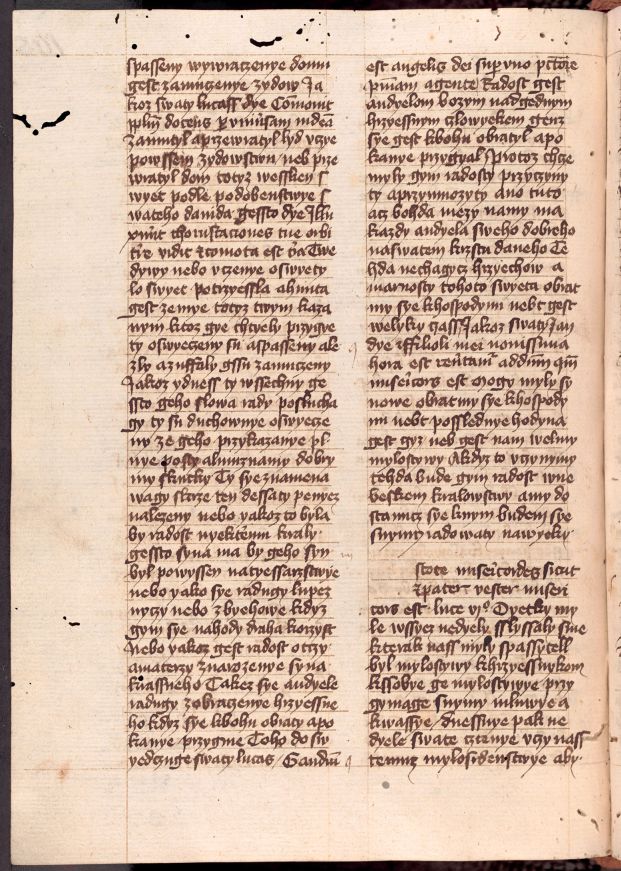 spasseny wywraczenye domu
gest zamuczenye zydow Ja
koz swaty lucass dye Comouit
pplm docens per vniuersam iudeam
zamutyl a przewratyl lyd vcze
powssem zydowstwu neb prze
wratyl dom totyz wessken s
wyet podle podobenstwye s
wateho dauida gessto dye Illu
xerunt choruscaciones tue orbi
terre vidit et comota est terra Twe
dywy nebo vczenye oswyety
lo swyet potrzyessla a hnuta
gest zemye totyz twym kaza
nym ktoz gye chtyely przygye
ty oswyeczeny su a spasseny ale
zly a zuffaly gssu zamuczeny
Jakoz y dness ty wssechny ge
ssto geho slowa rady poslucha
gy ty su duchownye oswyecze
ny ze geho przykazanye pl
nye posty almuznamy dobry
my skutky Ty sye znamena
wagy skrze ten dessaty penyez
nalezeny nebo yakoz to byla
by radost nyekternu kraly
gessto syna ma by geho syn
byl powyssen na tyessarzstwye
nebo yako sye radugy kupcz
nyczy nebo zbyehowe kdyz
gym sye nahody draha korzyst
nebo yakoz gest radost otczy
a materzy z narozenye syna
krassneho Takez sye andyele
radugy z obraczenye hrzyessne
ho kdyz sye k bohu obraty a po
kanye przygme Toho do sw
yedczuge swaty lucas Gaudium
est angelis dei super vno peccatore
penitenciam agente Radost gest
andyelom bozym nad gednym
hrzyessnym czlowyekem genz
sye gest k bohu obratyl a po
kanye przygyal Protoz chcze
myly gym radosty przyczyny
ty a przymnozyty Ano tuto
acz bohda mezy namy ma
kazdy andyela sweho dobreho
na swatem krzstu daneho Te
hda nechagycz hrzyechow a
marnosty tohoto swyeta obrat
my sye k hospodynu nebt gest
welyky czass Jakoz swaty Jan
dye Filioli mei nouissima
hora est reuertamur ad dominum quoniam
misericors est Mogy myly sy
nowe obratmy sye k hospody
nu nebt poslednye hodyna
gest gyz neb gest nam welmy
mylostywy A kdyz to vczynymy
tehda bude gym radost w ne
beskem kralowstwy a my do
stanucz sye k nym budem sye
s nymy radowaty na wyeky
stote misericordes sicut
et pater vester miseri
cors est luce vi° Dyetky my
le wssyecz nedyely sslyssaly sme
kterak nass myly spassytell
byl mylostywy k hrzyessnykom
k ssobye ge mylostywye przy
gymage s nymy mluwye a
kwassye dnessnye pak ne
dyele swate cztenye vczy nass
temuz mylosrdenstwye aby